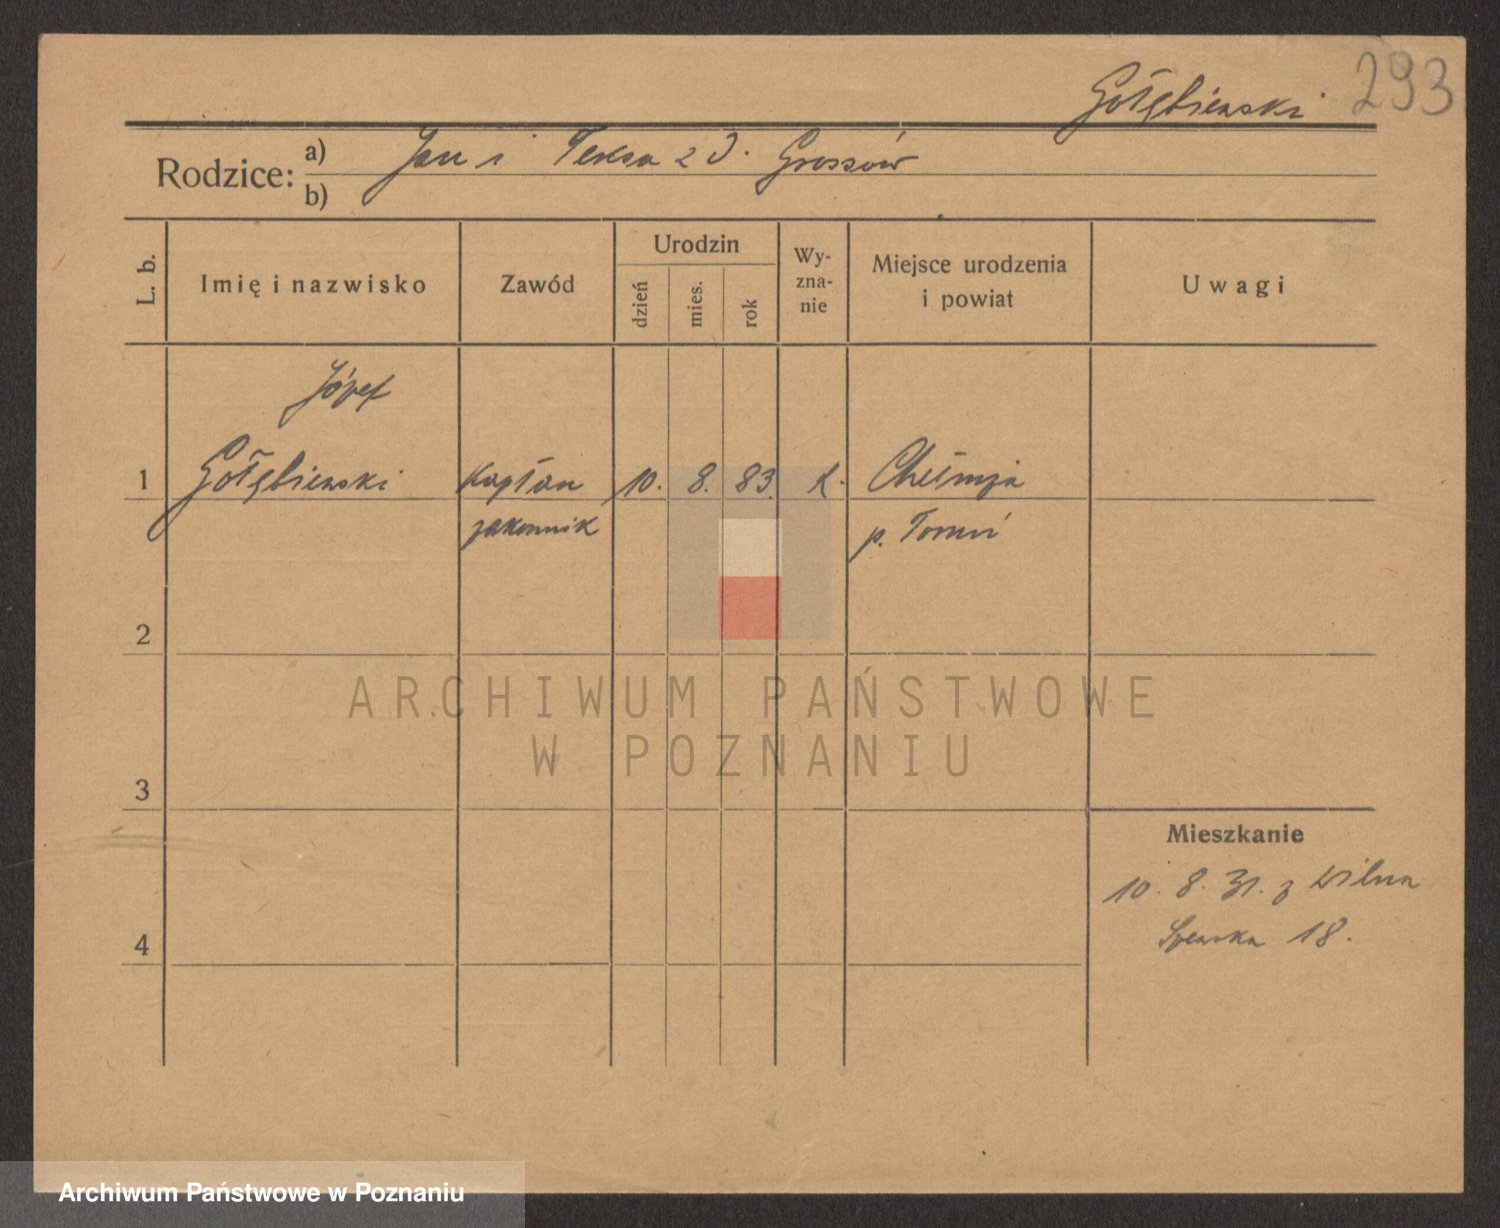 Gołębiewski 293
Rodzice: a) Jan i Teresa z d. Grossów
b)
L. b. Imię i nazwisko Zawód Urodzin dzień mies. rok Wyznanie Miejsce urodzenia i powiat Uwagi
Józef
1 Gołębiewski kapłan 10. 8. 83. k. Chełmża
zakonnik p. Toruń
2
ARCHIWUM PAŃSTWOWE
W POZNANIU
3
Mieszkanie
10. 8. 31. z Wilna
4 18.
Archiwum Państwowe w Poznaniu